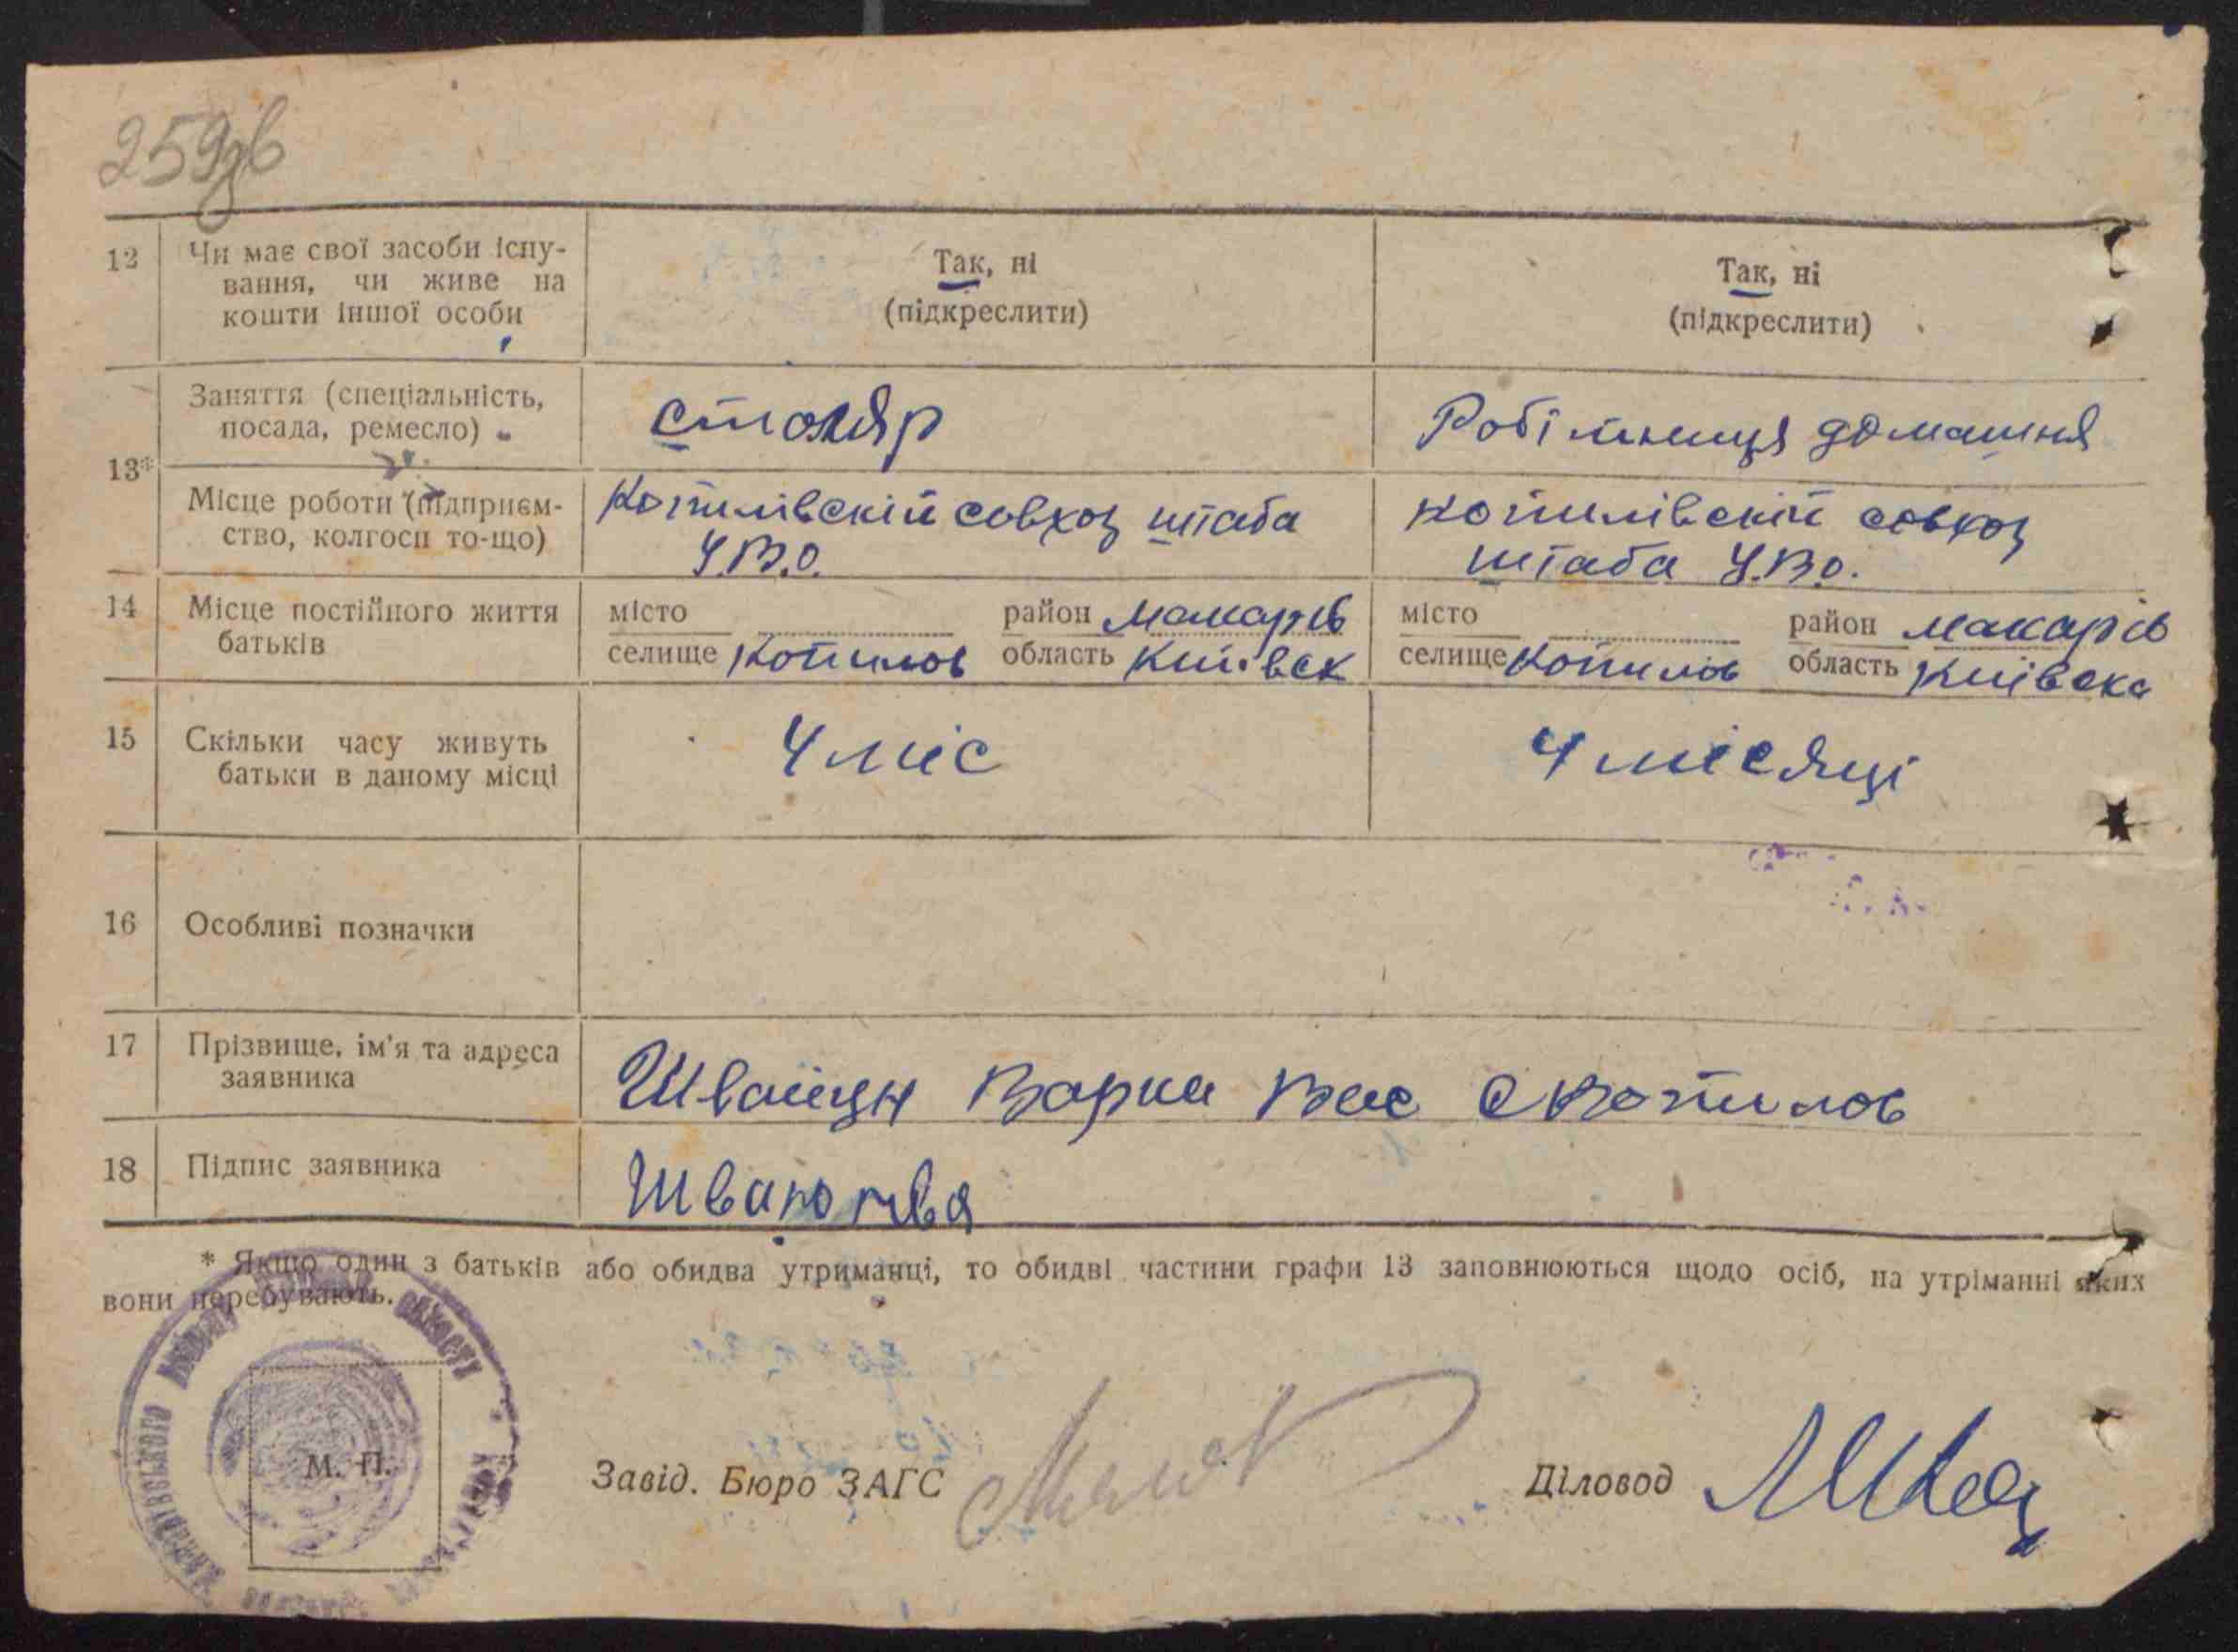 259зв
12 Чи має свої засоби існу-
вання, чи живе на
кошти іншої особи
Так, ні
(підкреслити)
Так, ні
(підкреслити)
13*
Заняття (спеціальність,
посада, ремесло)
столяр
Робітниця домашня
Місце роботи (підприєм-
ство, колгосп то-що)
Копилівскій совхоз штаба
У.В.О.
Копилівскій совхоз
штаба У.В.О.
14 Місце постійного життя
батьків
місто район Макарів
селище Копилов область Київск
місто район Макарів
селище Копилов область Київска
15 Скільки часу живуть
батьки в даному місці
4 міс
4 місяці
16 Особливі позначки
17 Прізвище, ім'я та адреса
заявника
Варки Вас с Копилов
18 Підпис заявника
* Якщо один з батьків або обидва утриманці, то обидві частини графи 13 заповнюються щодо осіб, на утріманні яких
вони перебувають.
М. П.
Завід. Бюро ЗАГС
Діловод